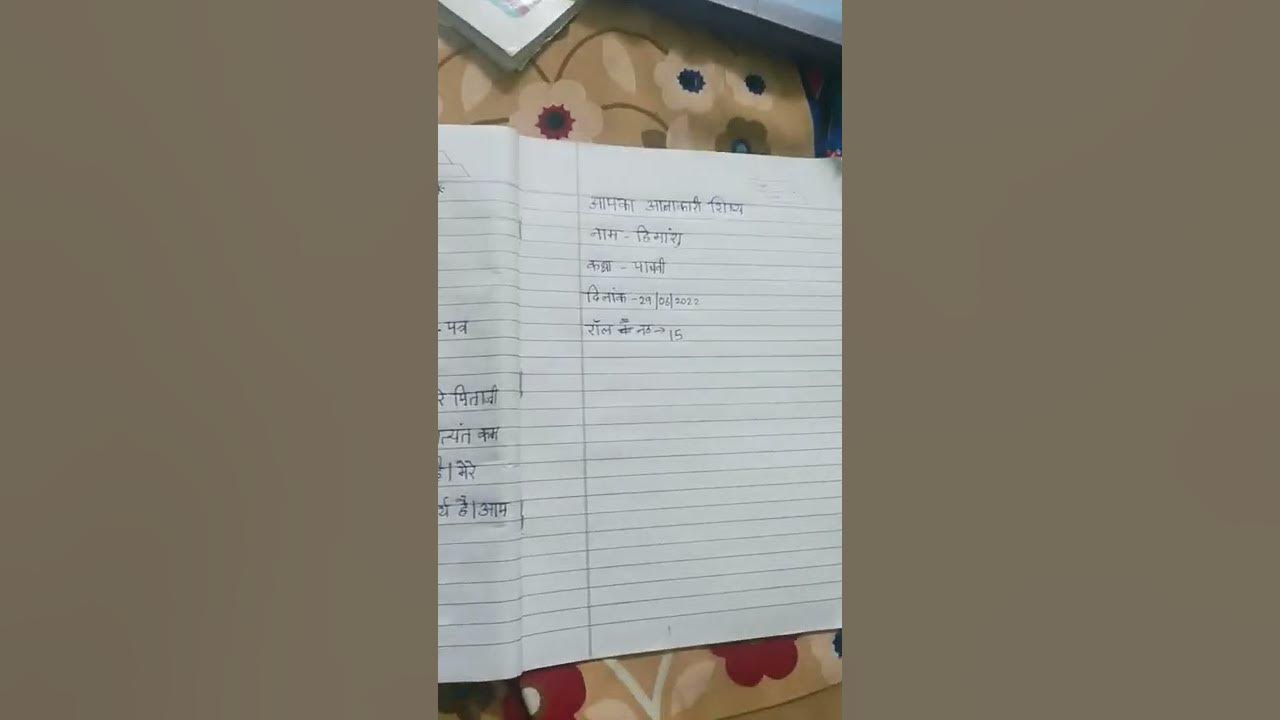 - पत्र
रे पिताजी
त्यंत कम
है। मेरे
र्थ है। आम
आपका आज्ञाकारी शिष्य
नाम - हिमांशु
कक्षा - पाचवी
दिनांक - 29/06/2022
रॉल नं० → 15